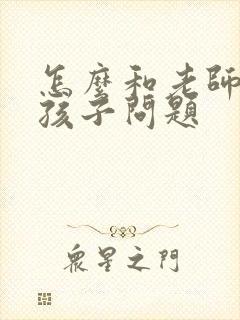 怎麼和老師
孩子問題
眾星之門